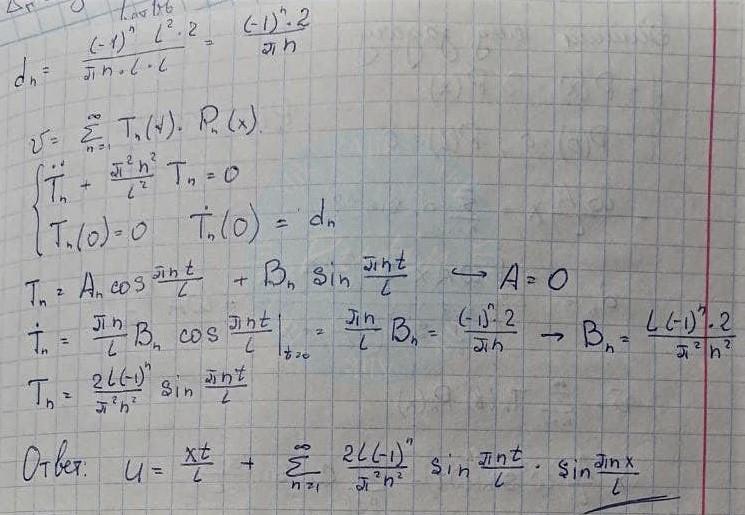 dₙ = \frac{(-1)^n · L^2 · 2}{πn · L · L} = \frac{(-1)^n · 2}{πn}
v = \sum_{n=1}^{∞} Tₙ(t) · Pₙ(x).
\ddot{T}ₙ + \frac{π^2 n^2}{L^2} Tₙ = 0
Tₙ(0) = 0 \dot{T}ₙ(0) = dₙ
Tₙ = Aₙ cos \frac{πnt}{L} + Bₙ sin \frac{πnt}{L} ↪ A = 0
\dot{T}ₙ = \frac{πn}{L} Bₙ cos \frac{πnt}{L} |_{t=0} = \frac{πn}{L} Bₙ = \frac{(-1)^n · 2}{πn} → Bₙ = \frac{L(-1)^n · 2}{π^2 n^2}
Tₙ = \frac{2L(-1)^n}{π^2 n^2} sin \frac{πnt}{L}
Ответ: u = \frac{xt}{L} + \sum_{n=1}^{∞} \frac{2L(-1)^n}{π^2 n^2} sin \frac{πnt}{L} · sin \frac{πnx}{L}